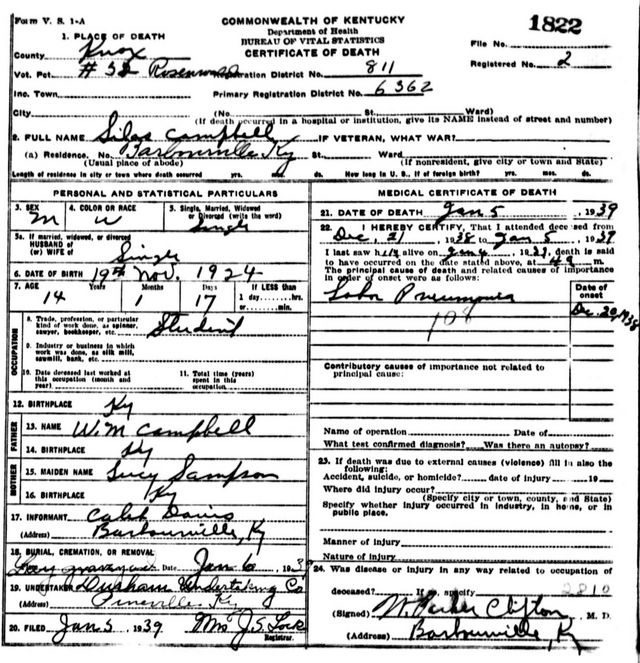 Form V. S. 1-A
COMMONWEALTH OF KENTUCKY
Department of Health
BUREAU OF VITAL STATISTICS
CERTIFICATE OF DEATH
1822
File No.
Registered No. 2
1. PLACE OF DEATH
County Knox
Vot. Pct. # 32 Registration District No. 811
Inc. Town Primary Registration District No. 6362
City (No. St. Ward)
(If death occurred in a hospital or institution, give its NAME instead of street and number)
2. FULL NAME Silas Campbell IF VETERAN, WHAT WAR?
(a) Residence. No. Barbourville, Ky St. Ward
(Usual place of abode) (If nonresident, give city or town and State)
Length of residence in city or town where death occurred yrs. mos. ds. How long in U. S., if of foreign birth? yrs. mos. ds.
PERSONAL AND STATISTICAL PARTICULARS
3. SEX M
4. COLOR OR RACE W
5. Single, Married, Widowed or Divorced (write the word) Single
5a. If married, widowed, or divorced
HUSBAND of
(or) WIFE of Single
6. DATE OF BIRTH 19th Nov. 1924
7. AGE Years Months Days If LESS than
14 1 17 1 day......hrs.
or......min.
OCCUPATION
8. Trade, profession, or particular kind of work done, as spinner, sawyer, bookkeeper, etc. Student
9. Industry or business in which work was done, as silk mill, sawmill, bank, etc.
10. Date deceased last worked at this occupation (month and year)
11. Total time (years) spent in this occupation
12. BIRTHPLACE Ky
FATHER
13. NAME W. M Campbell
14. BIRTHPLACE Ky
MOTHER
15. MAIDEN NAME Lucy Sampson
16. BIRTHPLACE Ky
17. INFORMANT Caleb Davis
(Address) Barbourville, Ky
18. BURIAL, CREMATION, OR REMOVAL
Date Jan 6, 1939
19. UNDERTAKER Durham Undertaking Co
(Address) Pineville, Ky
20. FILED Jan 5 1939 Mrs J. S. Lock
Registrar.
MEDICAL CERTIFICATE OF DEATH
21. DATE OF DEATH Jan 5, 1939
22. I HEREBY CERTIFY, That I attended deceased from
Dec, 31, 1938 to Jan 5, 1939
I last saw him alive on Jan 4, 1939, death is said
to have occurred on the date stated above, at m.
The principal cause of death and related causes of importance
in order of onset were as follows:
Date of onset
Lobar Pneumonia
Dec. 20, 1938
108
Contributory causes of importance not related to
principal cause:
Name of operation Date of
What test confirmed diagnosis? Was there an autopsy?
23. If death was due to external causes (violence) fill in also the
following:
Accident, suicide, or homicide? date of injury 19
Where did injury occur?
(Specify city or town, county, and State)
Specify whether injury occurred in industry, in home, or in
public place.
Manner of injury
Nature of injury
24. Was disease or injury in any way related to occupation of
deceased? If so, specify 2810
(Signed) W. Parker Clifton M. D.
(Address) Barbourville, Ky